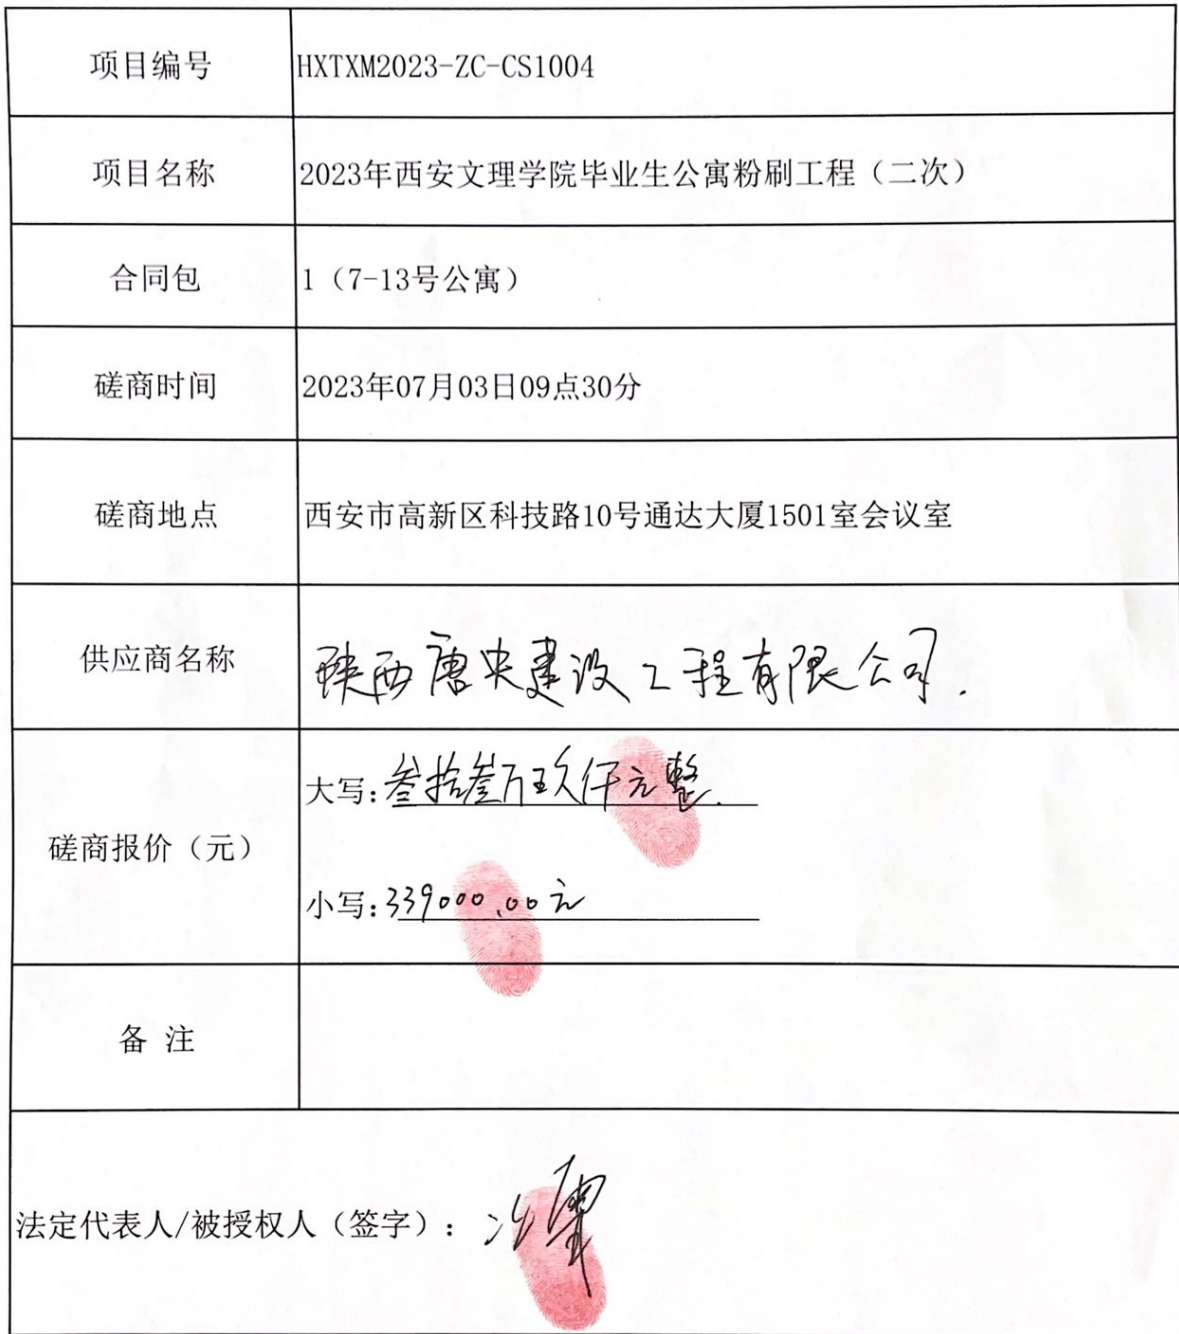 项目编号 HXTXM2023-ZC-CS1004
项目名称 2023年西安文理学院毕业生公寓粉刷工程（二次）
合同包 1（7-13号公寓）
磋商时间 2023年07月03日09点30分
磋商地点 西安市高新区科技路10号通达大厦1501室会议室
供应商名称 陕西唐央建设工程有限公司.
磋商报价（元）
大写:叁拾叁万玖仟元整.
小写:339000.00元
备 注
法定代表人/被授权人（签字）: